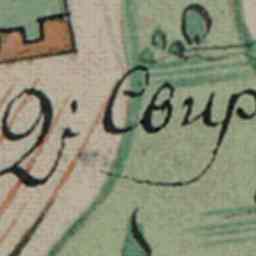 Д: Свир